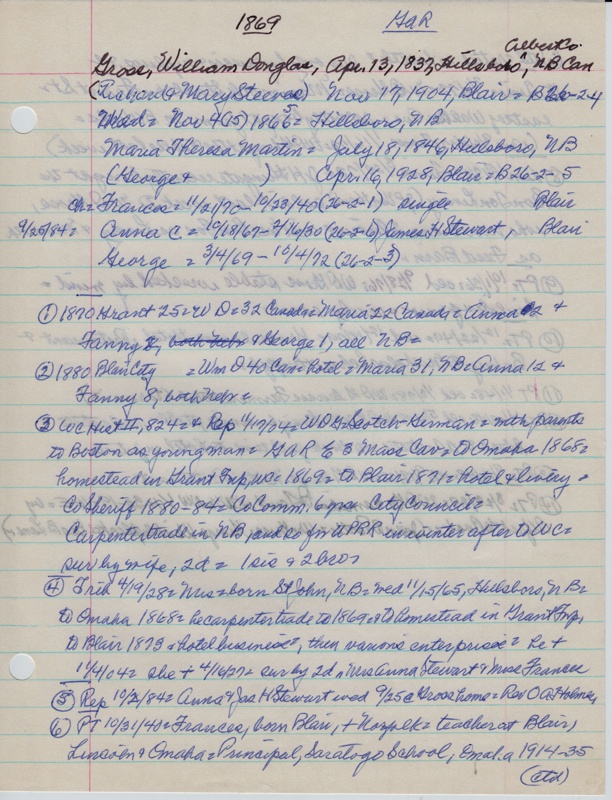 1869 GaR
Albert Co.
Gross, William Douglas, Apr. 13, 1837, Hillsboro, NB Can
(Richard & Mary Steeves) Nov 17, 1904, Blair = B26-2-4
Wed = Nov 9 (15) 1865 = Hillsboro, NB
Maria Theresa Martin = July 18, 1846, Hillsboro, NB
(George + ) Apr 16, 1928, Blair = B26-2-5
Ch = Frances = 11/21/70 - 10/23/40 (26-2-1) single Blair
9/25/84 = Anna C = 10/18/67 - 2/16/30 (26-2-6) James H Stewart, Blair
George = 3/4/69 - 10/4/72 (26-2-3)
① 1870 Grant 25 = W D = 32 Canada = Maria 22 Canada = Anna 2 +
Fanny, both Nebr & George 1, all NB =
② 1880 Blair City = Wm D 40 Can = hotel = Maria 31, NB = Anna 12 &
Fanny 8, both Nebr =
③ WC Hist II, 824 = & Rep 11/17/04 = WDG = Scotch-German = with parents
to Boston as young man = GaR E 3 Mass Cav = to Omaha 1868 =
homestead in Grant Twp, WC = 1869 = to Blair 1871 = hotel & livery =
Co Sheriff 1880-84 = Co Comm. 6 yrs City Council =
Carpenter trade in NB, and so for UPRR in winter after to WC =
sur by wife, 2d = 1 sis & 2 bros
④ Trib 4/19/28 = Mrs = born St John, NB = wed 11/15/65, Hillsboro, NB =
to Omaha 1868 = he carpenter trade to 1869 & to homestead in Grant Twp,
to Blair 1873 & hotel business, then various enterprises = he +
11/4/04 = she + 4/16/27 = sur by 2d, Mrs Anna Stewart & Miss Frances
⑤ Rep 10/2/84 = Anna & Jas H Stewart wed 9/25 @ Gross home = Rev O A Holmes
⑥ PT 10/31/40 = Frances, born Blair, + = teacher at Blair,
Lincoln & Omaha = Principal, Saratoga School, Omaha 1914-35
(ctd)